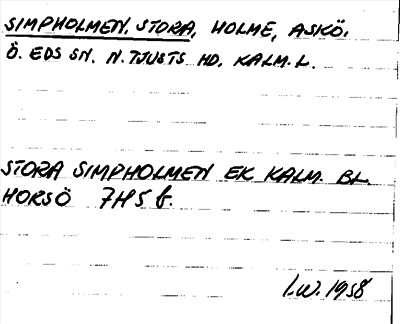 SIMPHOLMEN, STORA, HOLME, ASKÖ.
Ö. EDS SN. N. TJUSTS HD. KALM. L.
STORA SIMPHOLMEN EK KALM. BL.
HORSÖ 7H5 b.
I.W. 1958